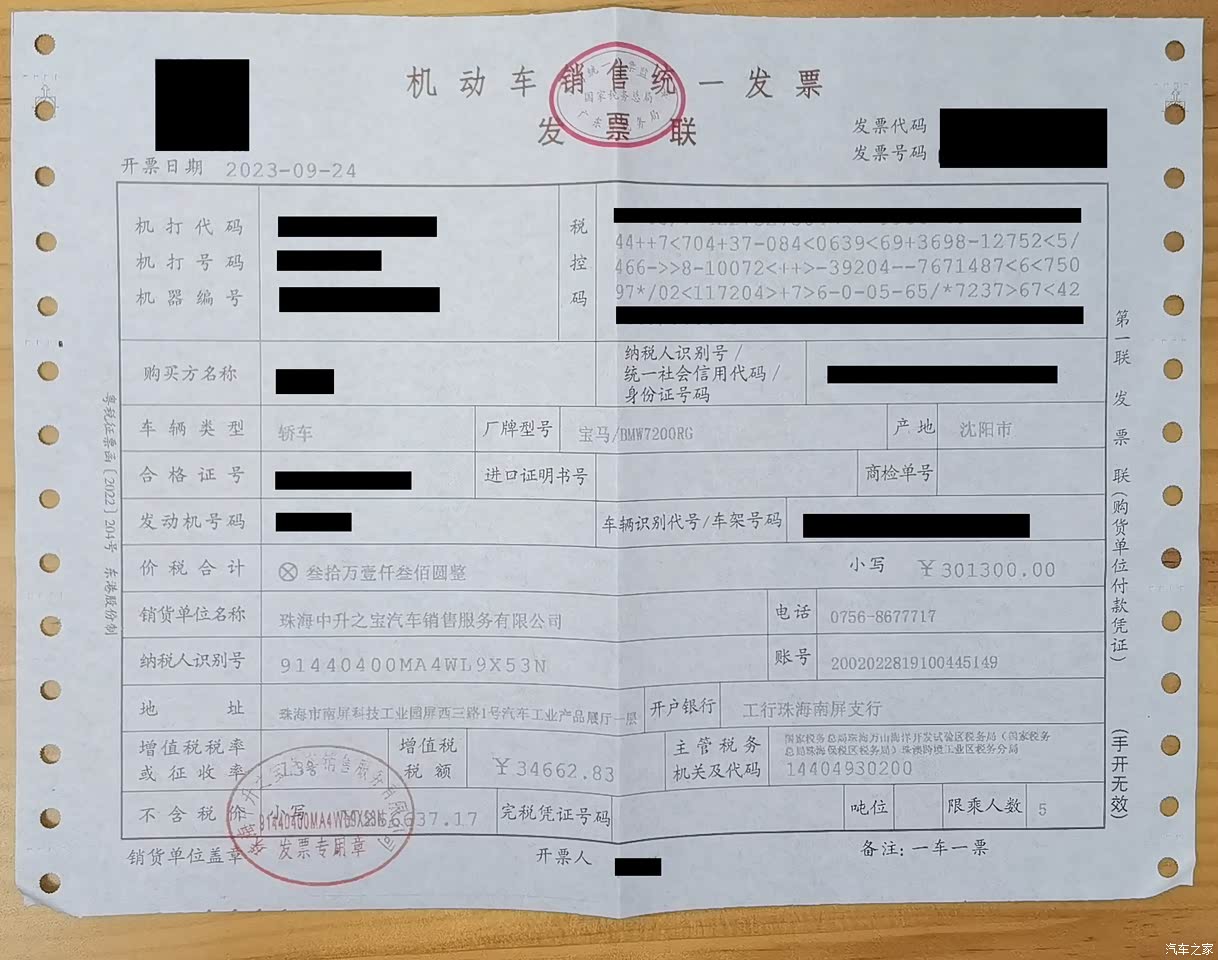 机动车销售统一发票
发票联
国家税务总局
发票代码
发票号码
开票日期 2023-09-24
机打代码
机打号码
机器编号
税控码
44++7<704+37-084<0639<69+3698-12752<5/
466->>8-10072<++>-39204--7671487<6<750
97*/02<117204>+7>6-0-05-65/*7237>67<42
购买方名称
纳税人识别号/
统一社会信用代码/
身份证号码
车辆类型 轿车 厂牌型号 宝马/BMW7200RG 产地 沈阳市
合格证号 进口证明书号 商检单号
发动机号码 车辆识别代号/车架号码
价税合计 ⊗ 叁拾万壹仟叁佰圆整 小写 ￥301300.00
销货单位名称 珠海中升之宝汽车销售服务有限公司 电话 0756-8677717
纳税人识别号 91440400MA4WL9X53N 账号 2002022819100445149
地址 珠海市南屏科技工业园屏西三路1号汽车工业产品展厅一层 开户银行 工行珠海南屏支行
增值税税率
或征收率 13%
增值税
税额 ￥34662.83
主管税务
机关及代码
国家税务总局珠海万山海洋开发试验区税务局(国家税务
总局珠海保税区税务局)珠澳跨境工业区税务分局
14404930200
不含税价 小写 ￥266637.17 完税凭证号码 吨位 限乘人数 5
91440400MA4WL9X53N
发票专用章
销货单位盖章 开票人 备注:一车一票
第一联 发票联(购货单位付款凭证)
(手开无效)
粤税征票函〔2022〕204号 东港股份制
汽车之家